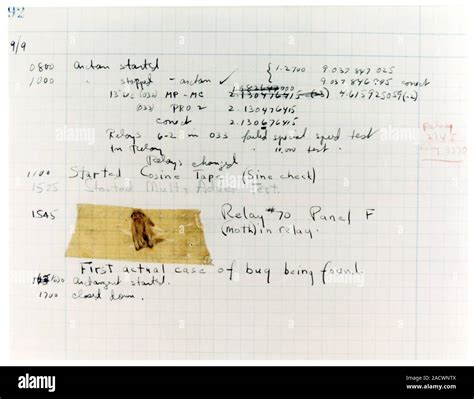 92
9/9
0800 Antan started { 1.2700 9.037 847 025
1000 " stopped - antan ✓ 9.037 846 995 correct
13'00 (032) MP - MC 2.130476415 (-3) 4.615925059(-2)
(033) PRO 2 2.130476415
correct 2.130676415
Relays 6-2 in 033 failed special speed test
In Relay 11,000 test.
Relays changed
1100 Started Cosine Tape (Sine check)
1525 Started Mult+ Adder Test.
1545 Relay #70 Panel F
(Moth) in relay.
First actual case of bug being found.
1630 antangent started.
1700 closed down.
alamy
Image ID: 2ACWNTX
www.alamy.com